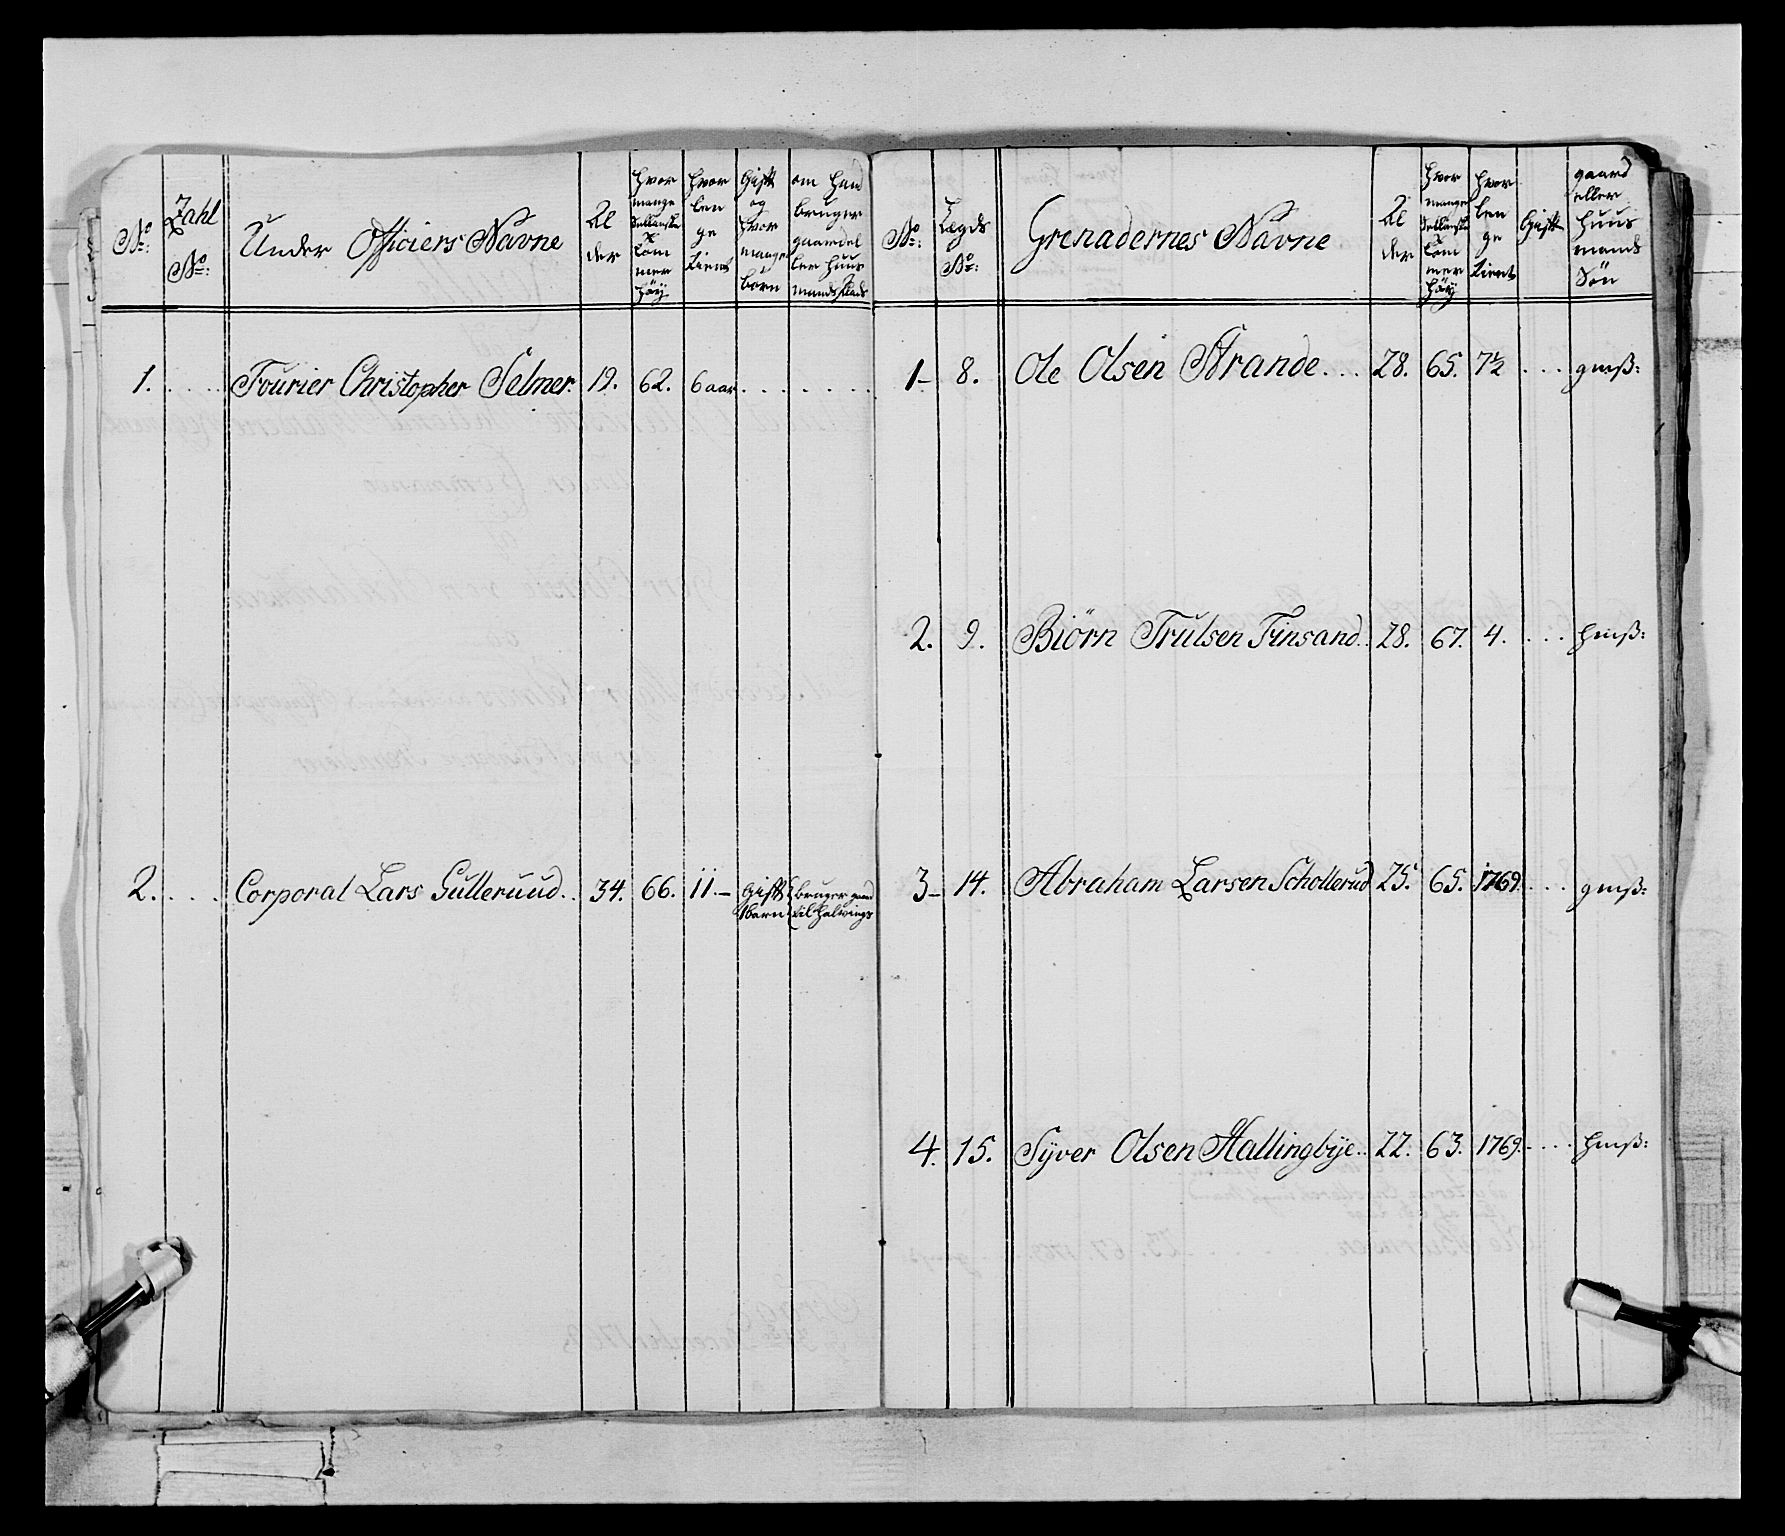 No:
Zahl No:
Under Officiers Navne
Al der
hvor mange Sellanske Tom mer höy
hvor len ge tient
Gift og hvor mange börn
om hand bruger gaard el ler huus mands Plads
1. . . . . Fourier Christopher Selmer. 19. 62. 6 aar . . . . . . .
2. . . . . Corporal Lars Gulleruud. . 34. 66. 11.– Gift 1 barn bruger gaard til Halvings
No:
Lægds No:
Grenadernes Navne
Al der
hvor mange Sellanske Tom mer höy
hvor len ge tient
Gift
gaard eller huus mands Sön
1– 8. Ole Olsen Strande. . . 28. 65. 7½ . . . gmß:
2. 9. Biörn Trulsen Finsand. . 28. 67. 4. . . . hmß:
3– 14. Abraham Larsen Schollerud 25. 65. 1769. . . . gmß:
4. 15. Syver Olsen Hallingbÿe. . 22. 63. 1769. . . . hmß: